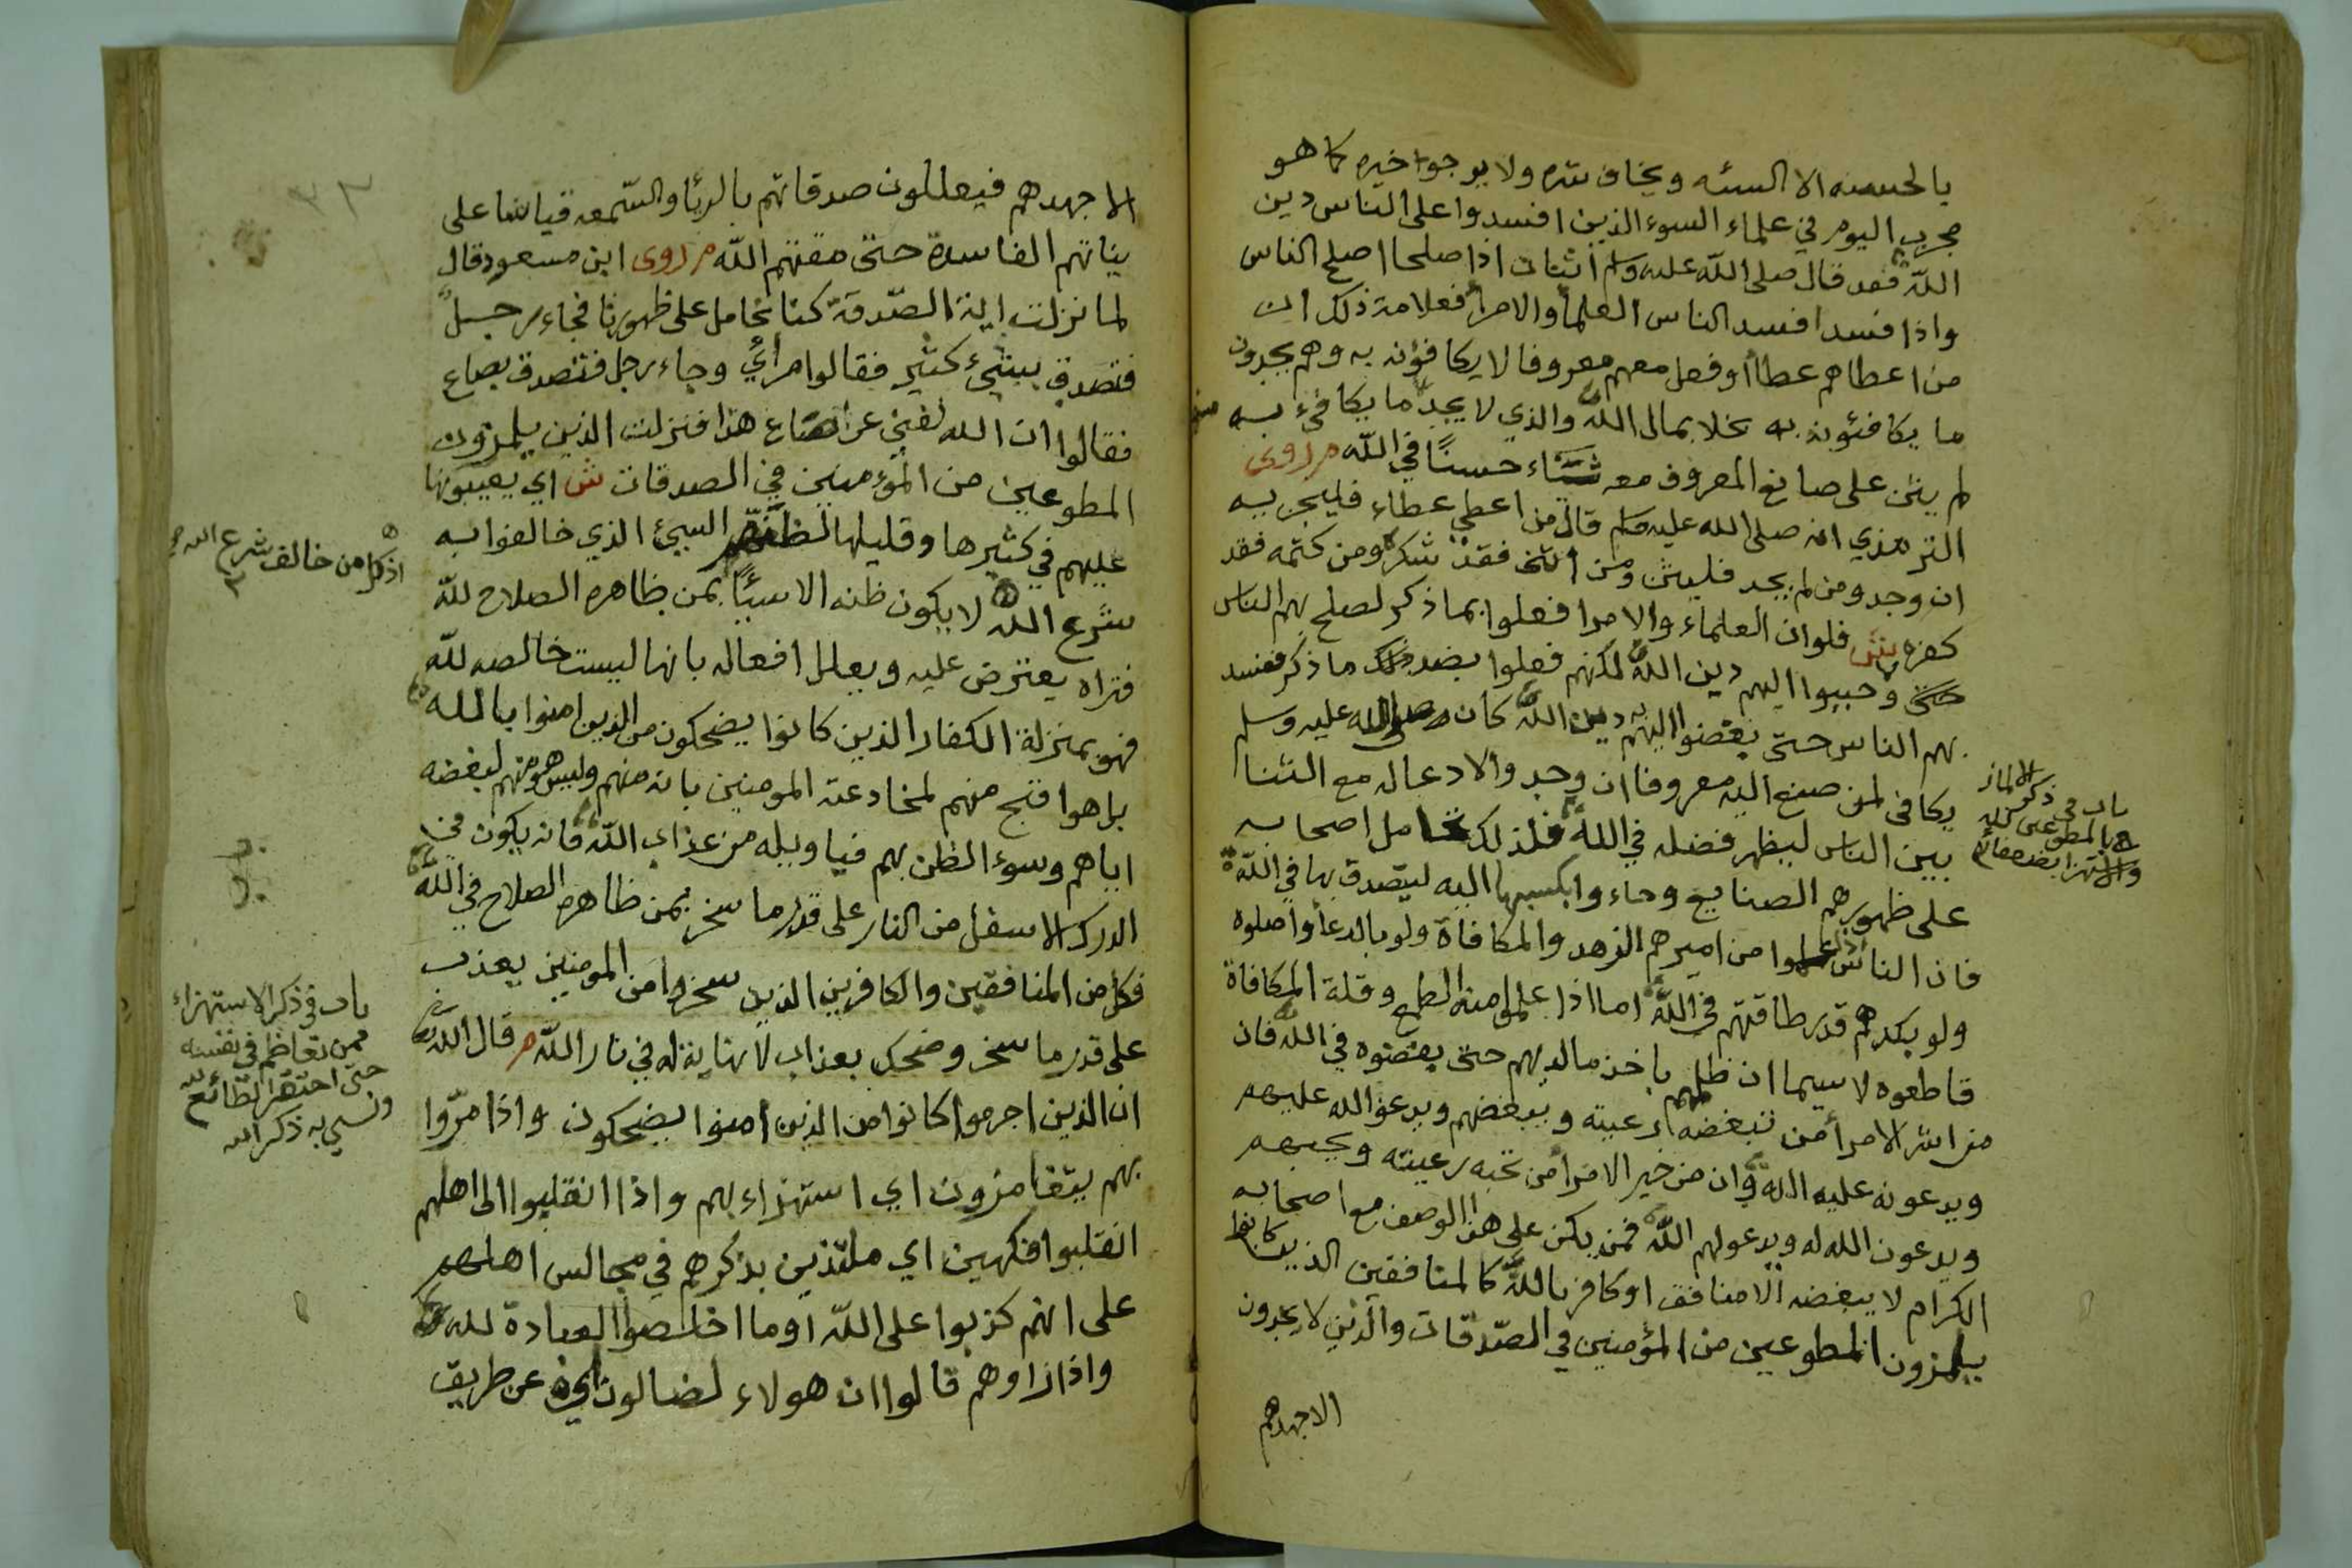 بالحسنه الا السئه ويخاف شره ولا يرجوا خيره كما هو
مجرب اليوم في علماء السوء الذين افسدوا على الناس دين
الله فقد قال صلى الله عليه وسلم اثنان اذا صلحا اصلح الناس
واذا فسدا فسد الناس العلمأ والامرأ فعلامة ذلك ان
من اعطاهم عطاأ او فعل معهم معروفا لا يكافؤنه به وهم يجدون
ما يكافئونه به بخلا بمال الله والذي لا يجد ما يكافئ به
لم يثن على صانع المعروف معه ثناء حسنًا في الله م روى
الترمذي انه صلى الله عليه وسلم قال من اعطي عطاء فليجز به
ان وجد ومن لم يجد فليثن ومن اثنى فقد شكر ومن كتمه فقد
كفره ش فلو ان العلماء والامرا فعلوا بما ذكر لصلح بهم الناس
وحببوا اليهم دين الله لكنهم فعلوا بضد ما ذكر ففسد
بهم الناس حتى بغضوا اليهم دين الله كان صلى الله عليه وسلم
يكافى لمن صنع اليه معروفا ان وجد والا دعا له مع الثنا
بين الناس ليظهر فضله في الله فلذلك تحامل اصحابه
على ظهورهم الصنايع وجاء وا بكسبها اليه ليتصدق بها في الله
فان الناس اذا علموا من اميرهم الزهد والمكافاة ولو بالدعأ واصلوه
ولو بكدهم قدر طاقتهم في الله اما اذا علموا منه الطمع وقلة المكافاة
قاطعوه لا سيما ان ظلمهم باخذ ما لديهم حتى يبغضوه في الله فان
من اشر الامرأ من تبغضه رعيته ويبغضهم ويدعو الله عليهم
ويدعونه عليه الله وان من خير الامرأ من تحبه رعيته ويحبهم
ويدعون الله له ويدعو لهم الله فمن يكن على هذا الوصف مع اصحابه
الكرام لا يبغضه الا منافق او كافر بالله كالمنافقين الذين كانوا
يلمزون المطوعين من المؤمنين في الصدقات والذين لا يجدون
الا جهدهم
الا جهدهم فيعللون صدقاتهم بالريأ والسمعه قياسا على
نياتهم الفاسدة حتى مقتهم الله م روى ابن مسعود قال
لما نزلت اية الصدقة كنا نحامل على ظهورنا فجاء رجل
فتصدق بشيء كثير فقالوا مرأي وجاء رجل فتصدق بصاع
فقالوا ان الله لغني عن صاع هذا فنزلت الذين يلمزون
المطوعين من المؤمنين في الصدقات ش اي يعيبونها
عليهم في كثيرها وقليلها لظنهم السيئ الذي خالفوا به
شرع الله لا يكون ظنه الا سيئًا بمن ظاهره الصلاح لله
فتراه يعترض عليه ويعلل افعاله بانها ليست خالصه لله
فهو بمنزلة الكفار الذين كانوا يضحكون من الذين امنوا بالله
بل هو اقبح منهم لمخادعته المومنين بانه منهم وليس هو منهم لبغضه
اياهم وسوء الظن بهم فيا ويله من عذاب الله فانه يكون في
الدرك الاسفل من النار على قدر ما سخر بمن ظاهره الصلاح في الله
فكل من المنافقين والكافرين الذين سخروا من المومنين يعذب
على قدر ما سخر وضحك بعذاب لا نهاية له في نار الله م قال الله
ان الذين اجرموا كانوا من الذين امنوا يضحكون واذا مروا
بهم يتغامزون اي استهزاء بهم واذا انقلبوا الى اهلهم
انقلبوا فكهين اي ملتذين بذكرهم في مجالس اهلهم
على انهم كذبوا على الله او ما اخلصوا العبادة لله
واذا راوهم قالوا ان هولاء لضالون اي عن طريق
اذ كل من خالف شرع الله
باب في ذكر الاستهزاء
ممن تعاظم في نفسه
حتى احتقر الطائع لله
ونسي به ذكر الله